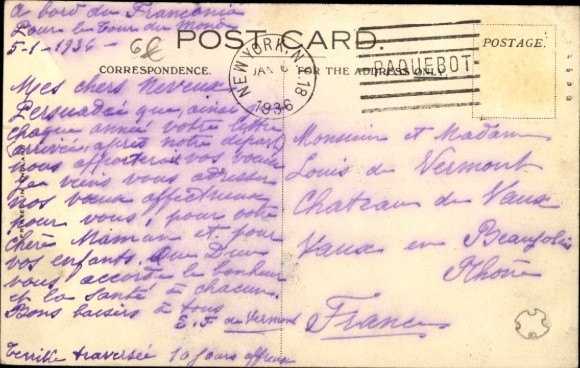 A bord du Franconia
Pour le Tour du Monde
5-1-1936-
POST CARD.
CORRESPONDENCE.
FOR THE ADDRESS ONLY
POSTAGE.
NEW YORK, N.Y.
JAN 6
1936
18
PAQUEBOT
Mes chers Neveux
Persuadée que, ainsi
chaque année votre lettre
(arrivée, après notre départ)
nous apporterait vos voeux
Je viens vous adresser
nos voeux affectueux
pour vous, pour votre
chère Maman et pour
vos enfants. Que Dieu
vous accorde le bonheur
et la santé à chacun.
Bons baisers à tous
E. F de Vermont
Terrible traversée 10 jours affreux
Monsieur et Madame
Louis de Vermont
Chateau de Vaux
Vaux en Beaujolais
Rhône
France